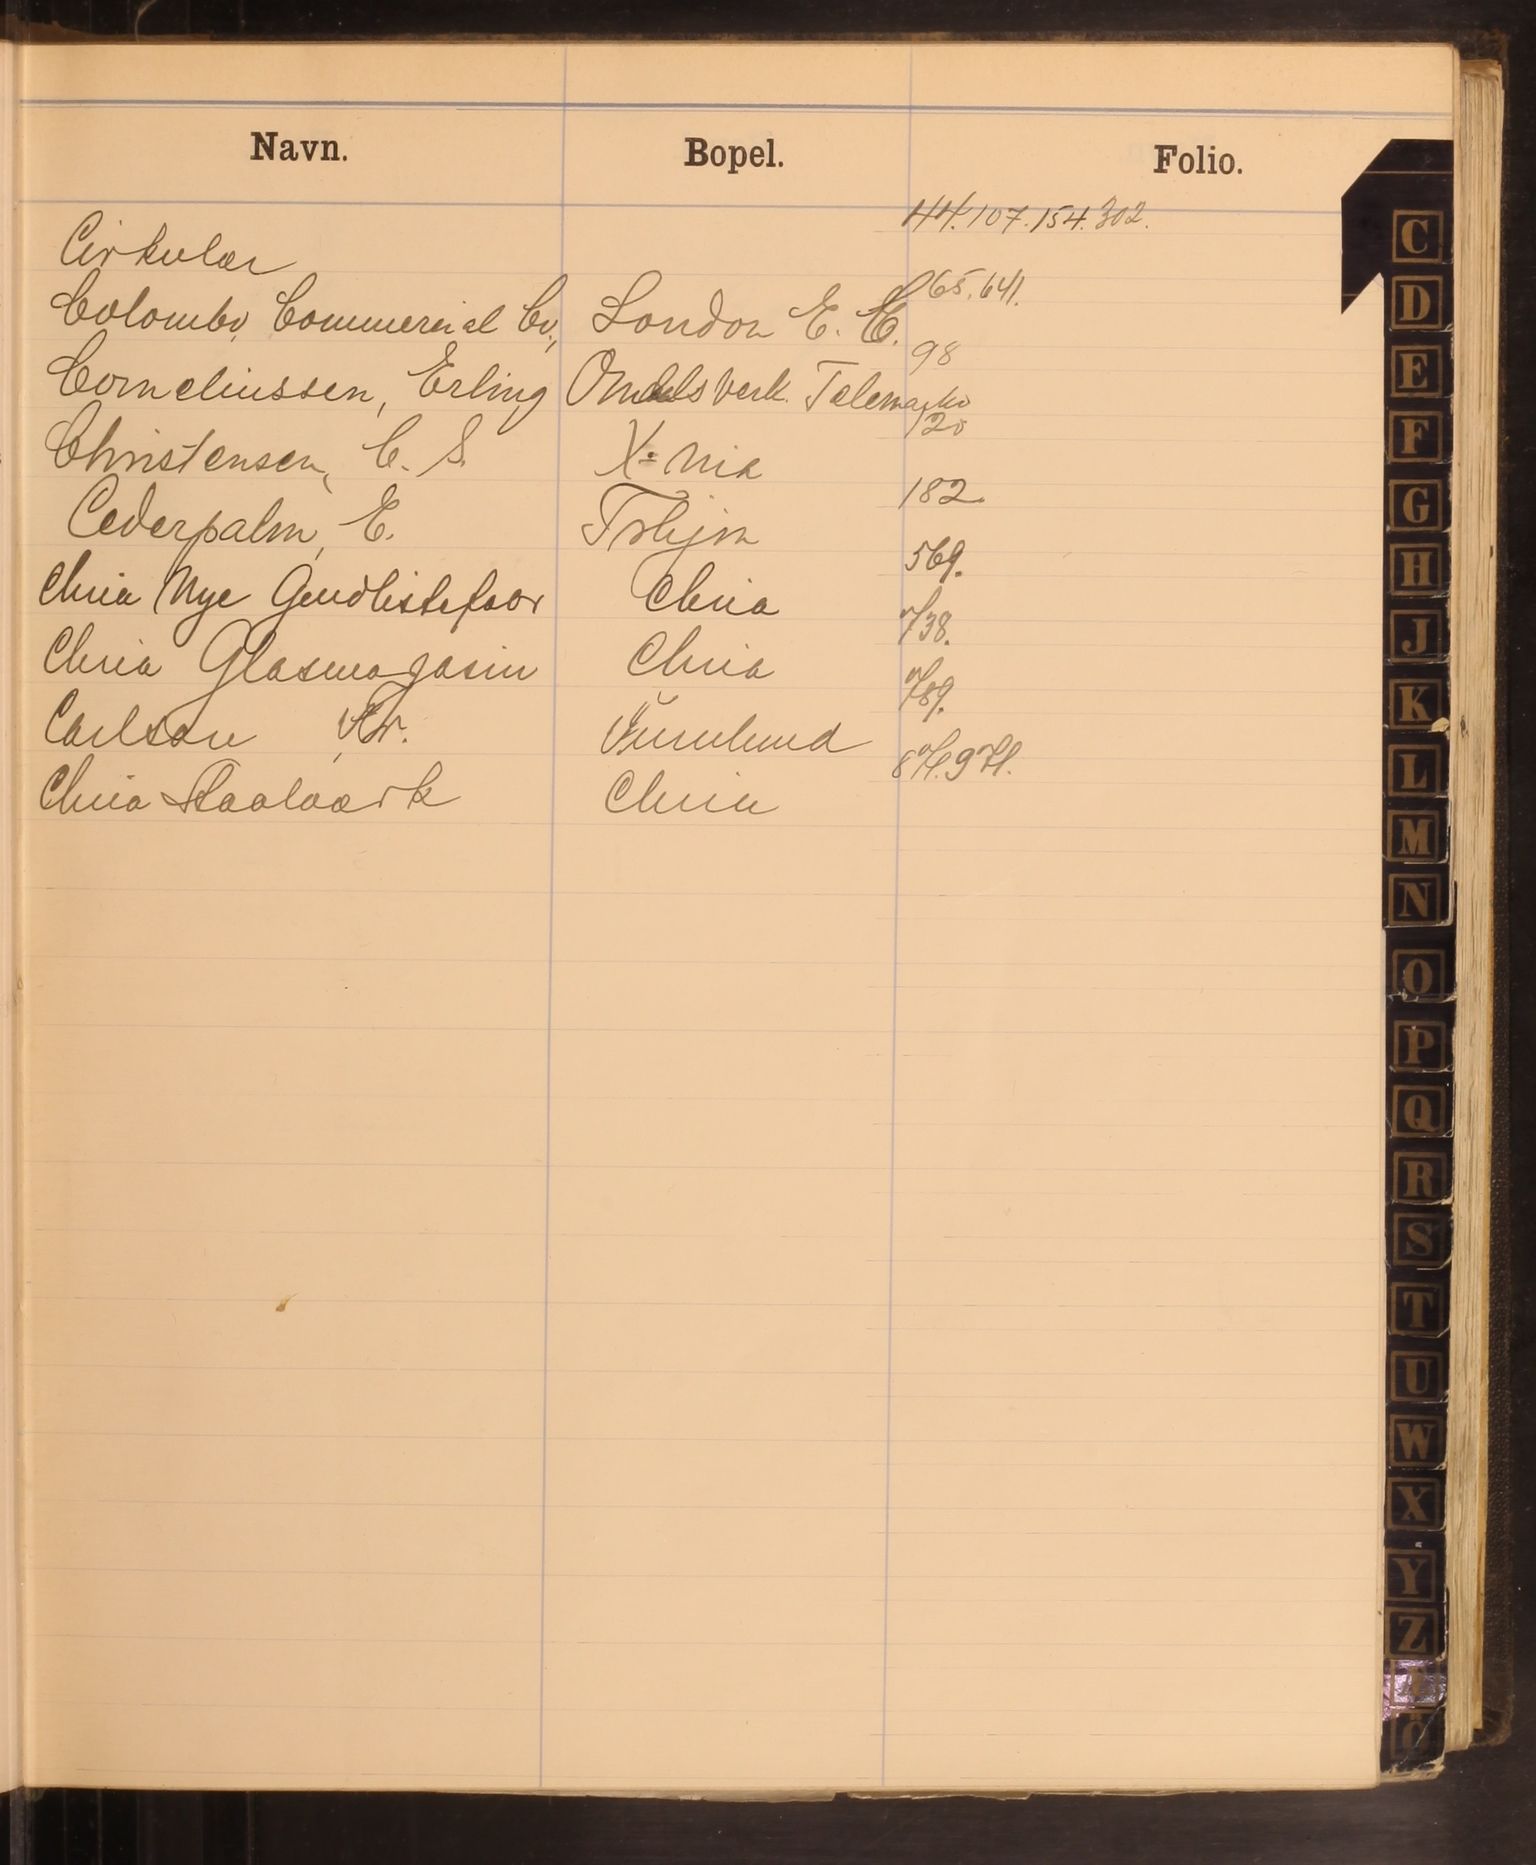 Navn. Bopel. Folio.
Cirkulær 44. 107. 154. 302.
Colombo Commercial Co., London E. C. 65. 641.
Corneliussen, Erling Omdals Verk. Telemarken 98
Christensen, C. S. X=nia 120
Cederpalm, E. Trhjm 182.
Chria Nye Gendlistefoor Chria 569.
Chria Glasmagasin Chria 738.
Carlson Kr. 789.
Chria Staalværk Chria 871. 971.
C
D
E
F
G
H
J
K
L
M
N
O
P
Q
R
S
T
U
W
X
Y
Z
Ö